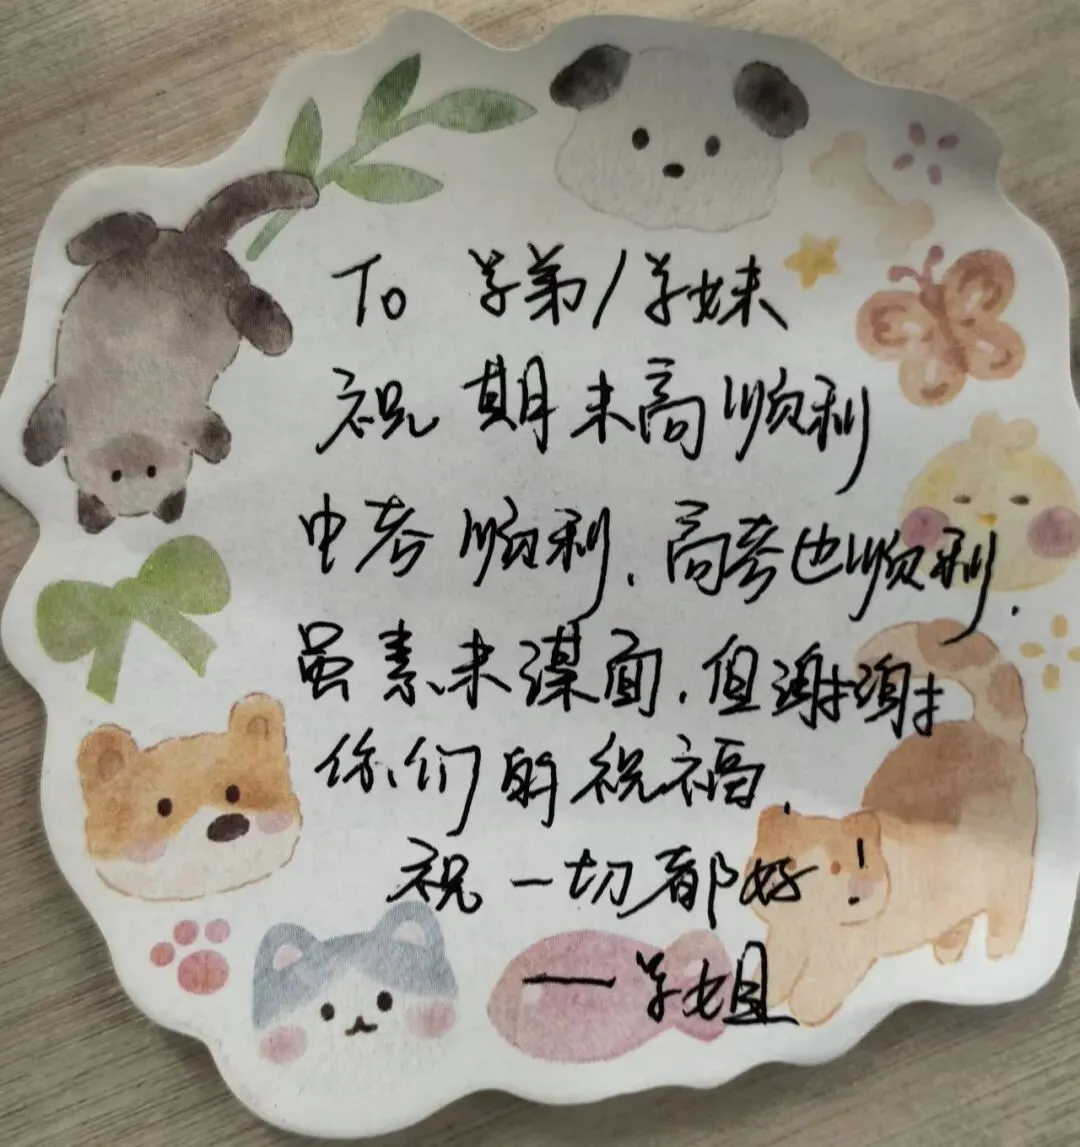 To 学弟/学妹
祝期末高顺利
中考顺利.高考也顺利.
虽素未谋面.但谢谢
你们的祝福.
祝一切都好!
——学姐